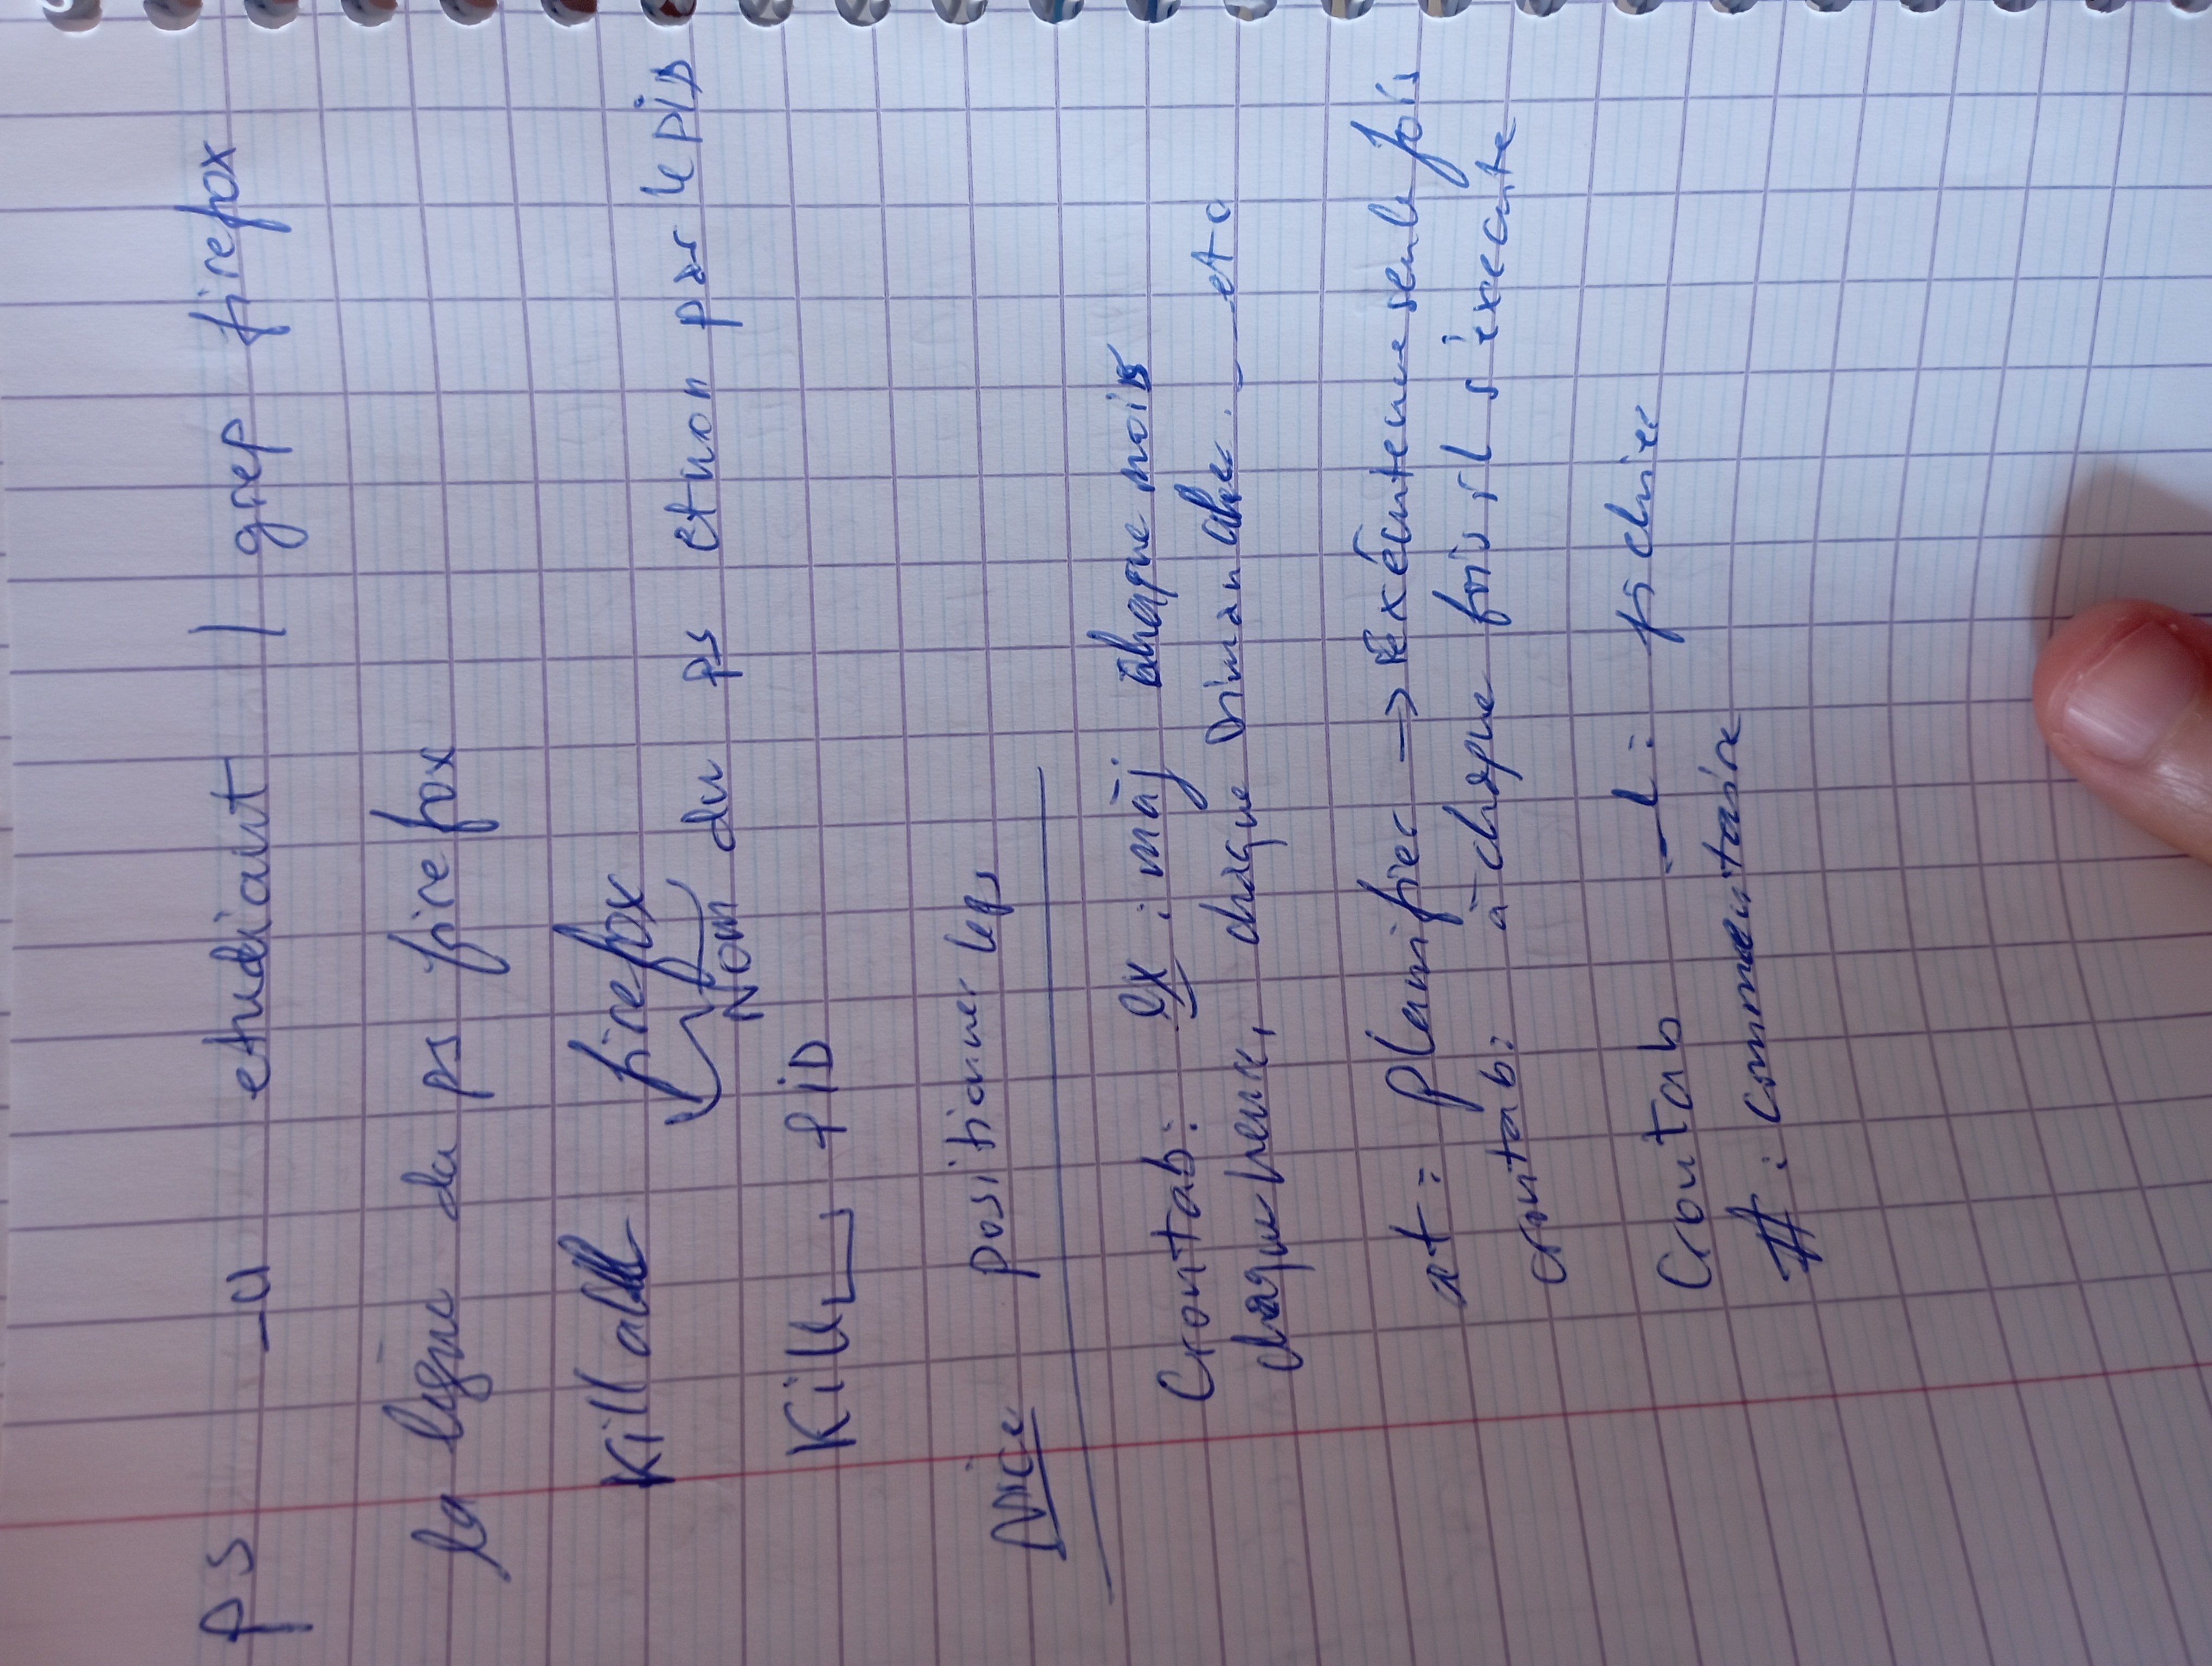 ps -u etudiant | grep firefox
la ligne du ps firefox
Killall firefox
Nom du ps et non par le PiD
Kill PiD
Nice positionner le ps
Crontab: ex : màj chaque mois
chaque heure, chaque Dimanche . __ etc
at: Planifier → Exécute une seule fois
crontab: à chaque fois il s'execute
Crontab -l: fichier
#: commentaire